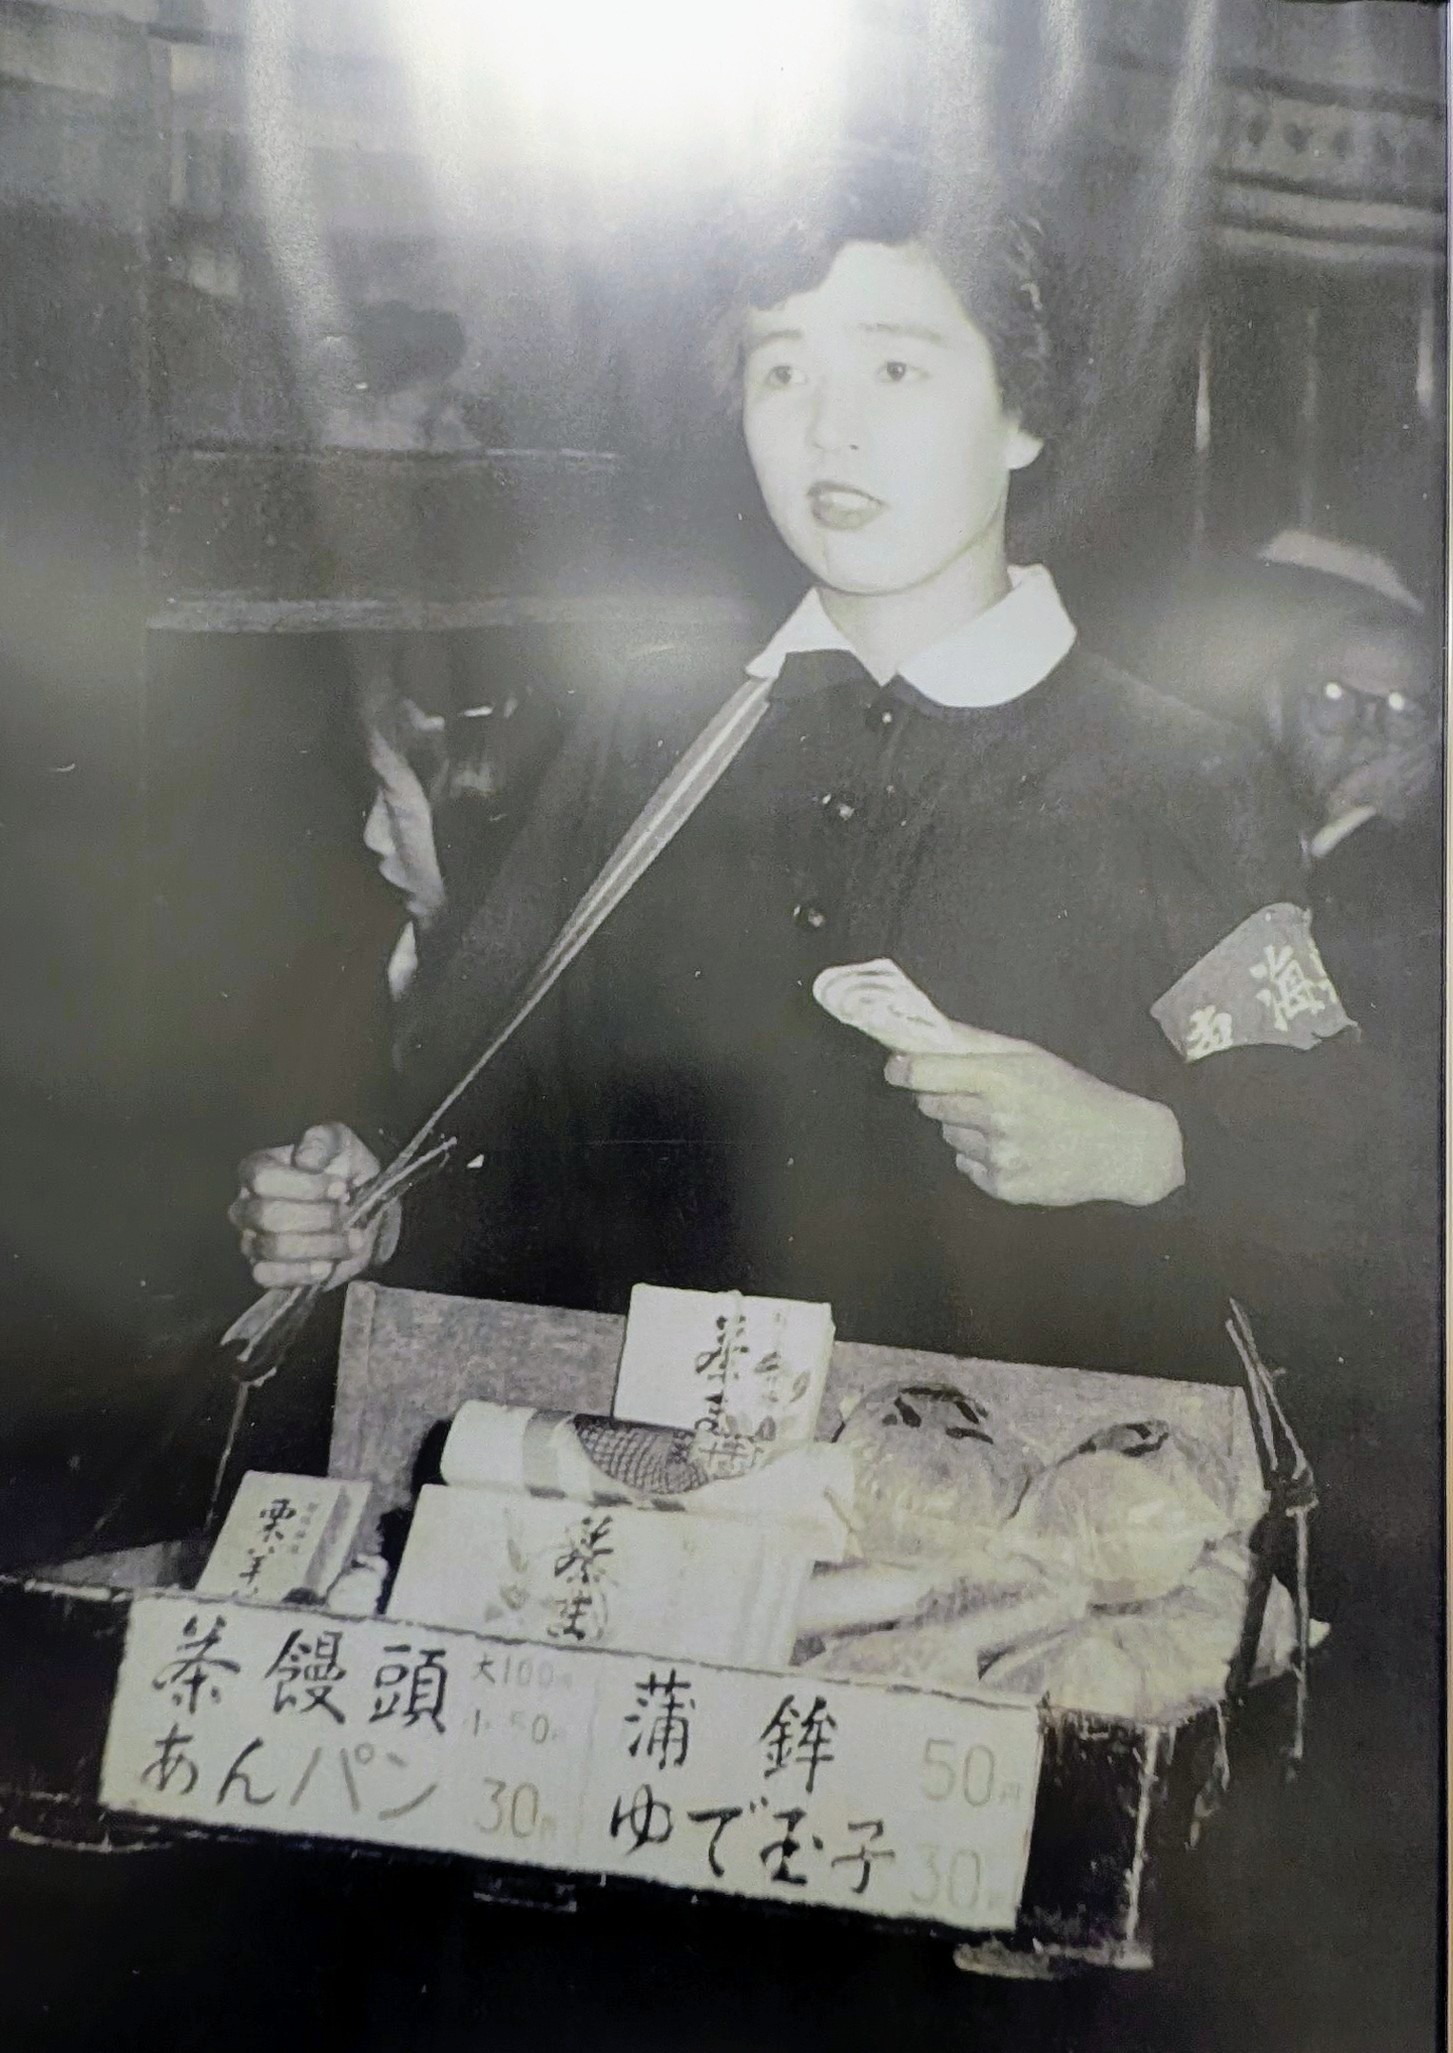 茶饅頭 大100円
小50円
あんパン 30円
蒲鉾 50円
ゆで玉子 30円
海